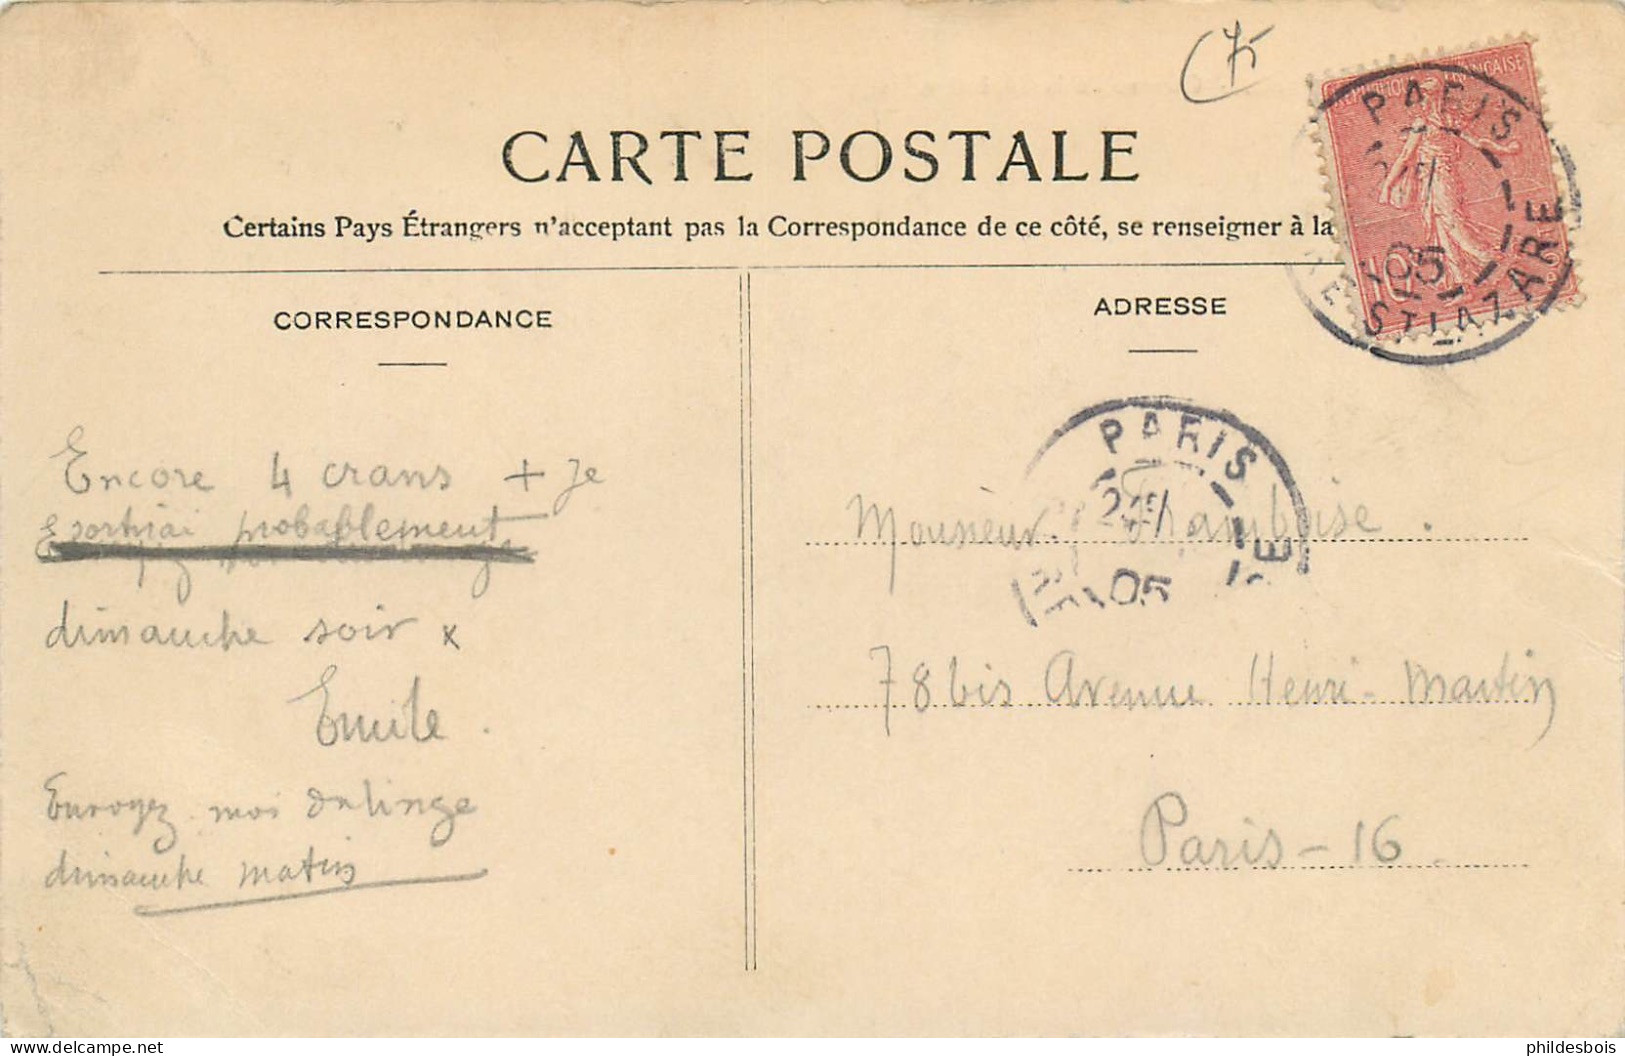 CARTE POSTALE
Certains Pays Étrangers n'acceptant pas la Correspondance de ce côté, se renseigner à la
CORRESPONDANCE
Encore 4 crans + Je
sortirai probablement
dimanche soir x
Emile.
Envoyez moi du linge
dimanche matin
ADRESSE
Monsieur Framboise.
78 bis Avenue Henri-Martin
Paris-16
FRANÇAISE
10
PARIS
05
ST LAZARE
PARIS
05
phildesbois